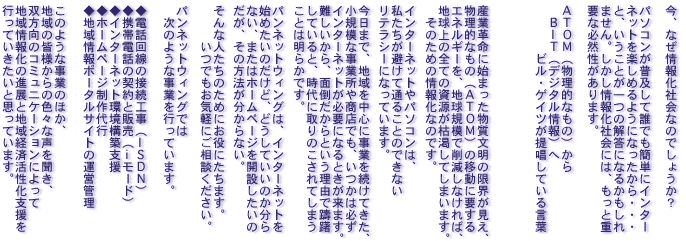 今、なぜ情報化社会なのでしょうか？
パソコンが普及して誰でも簡単にインター
ネットを楽しめるようになったから・・・
と、いうことが一つの解答になるかもしれ
ません。しかし情報化社会には、もっと重
要な必然性があります。
ＡＴＯＭ（物理的なもの）から
ＢＩＴ（デジタル情報）へ
ビル・ゲイツが提唱している言葉
産業革命に始まった物質文明の限界が見え、
物理的なもの（ＡＴＯＭ）の移動に要する
エネルギーを、地球規模で削減しなければ、
地球上の全ての資源が枯渇してしまいます。
そのための情報化なのです。
インターネットやパソコンは、
私たちが避けて通ることのできない
リテラシーになっています。
今日まで、地域を中心に事業を続けてきた、
小規模な事業所や商店でも、いつかは必ず
インターネットが必要になるときが来ます。
難しいから、面倒だからという理由で躊躇
していると、時代に取りのこされてしまう
ことは明らかです。
パンネットウィングは、インターネットを
始めたいのだけど、どうしていいのか分ら
ない、またはホームページを開設したいの
だが、その方法が分からない。
そんな人たちのためにお役にたちます。
いつでもお気軽にご相談ください。
パンネットウィングでは
次のような事業を行っています。
◆電話回線の接続工事（ＩＳＤＮ）
◆携帯電話の契約と販売（ｉモード）
◆インターネット環境構築支援
◆ホームページ制作代行
◆地域情報ポータルサイトの運営管理
このような事業のほか、
地域の皆様からの色々な声を聞き、
双方向のコミュニケーションによって
地域情報化の進展と地域経済活性化支援を
行っていきたいと思っています。